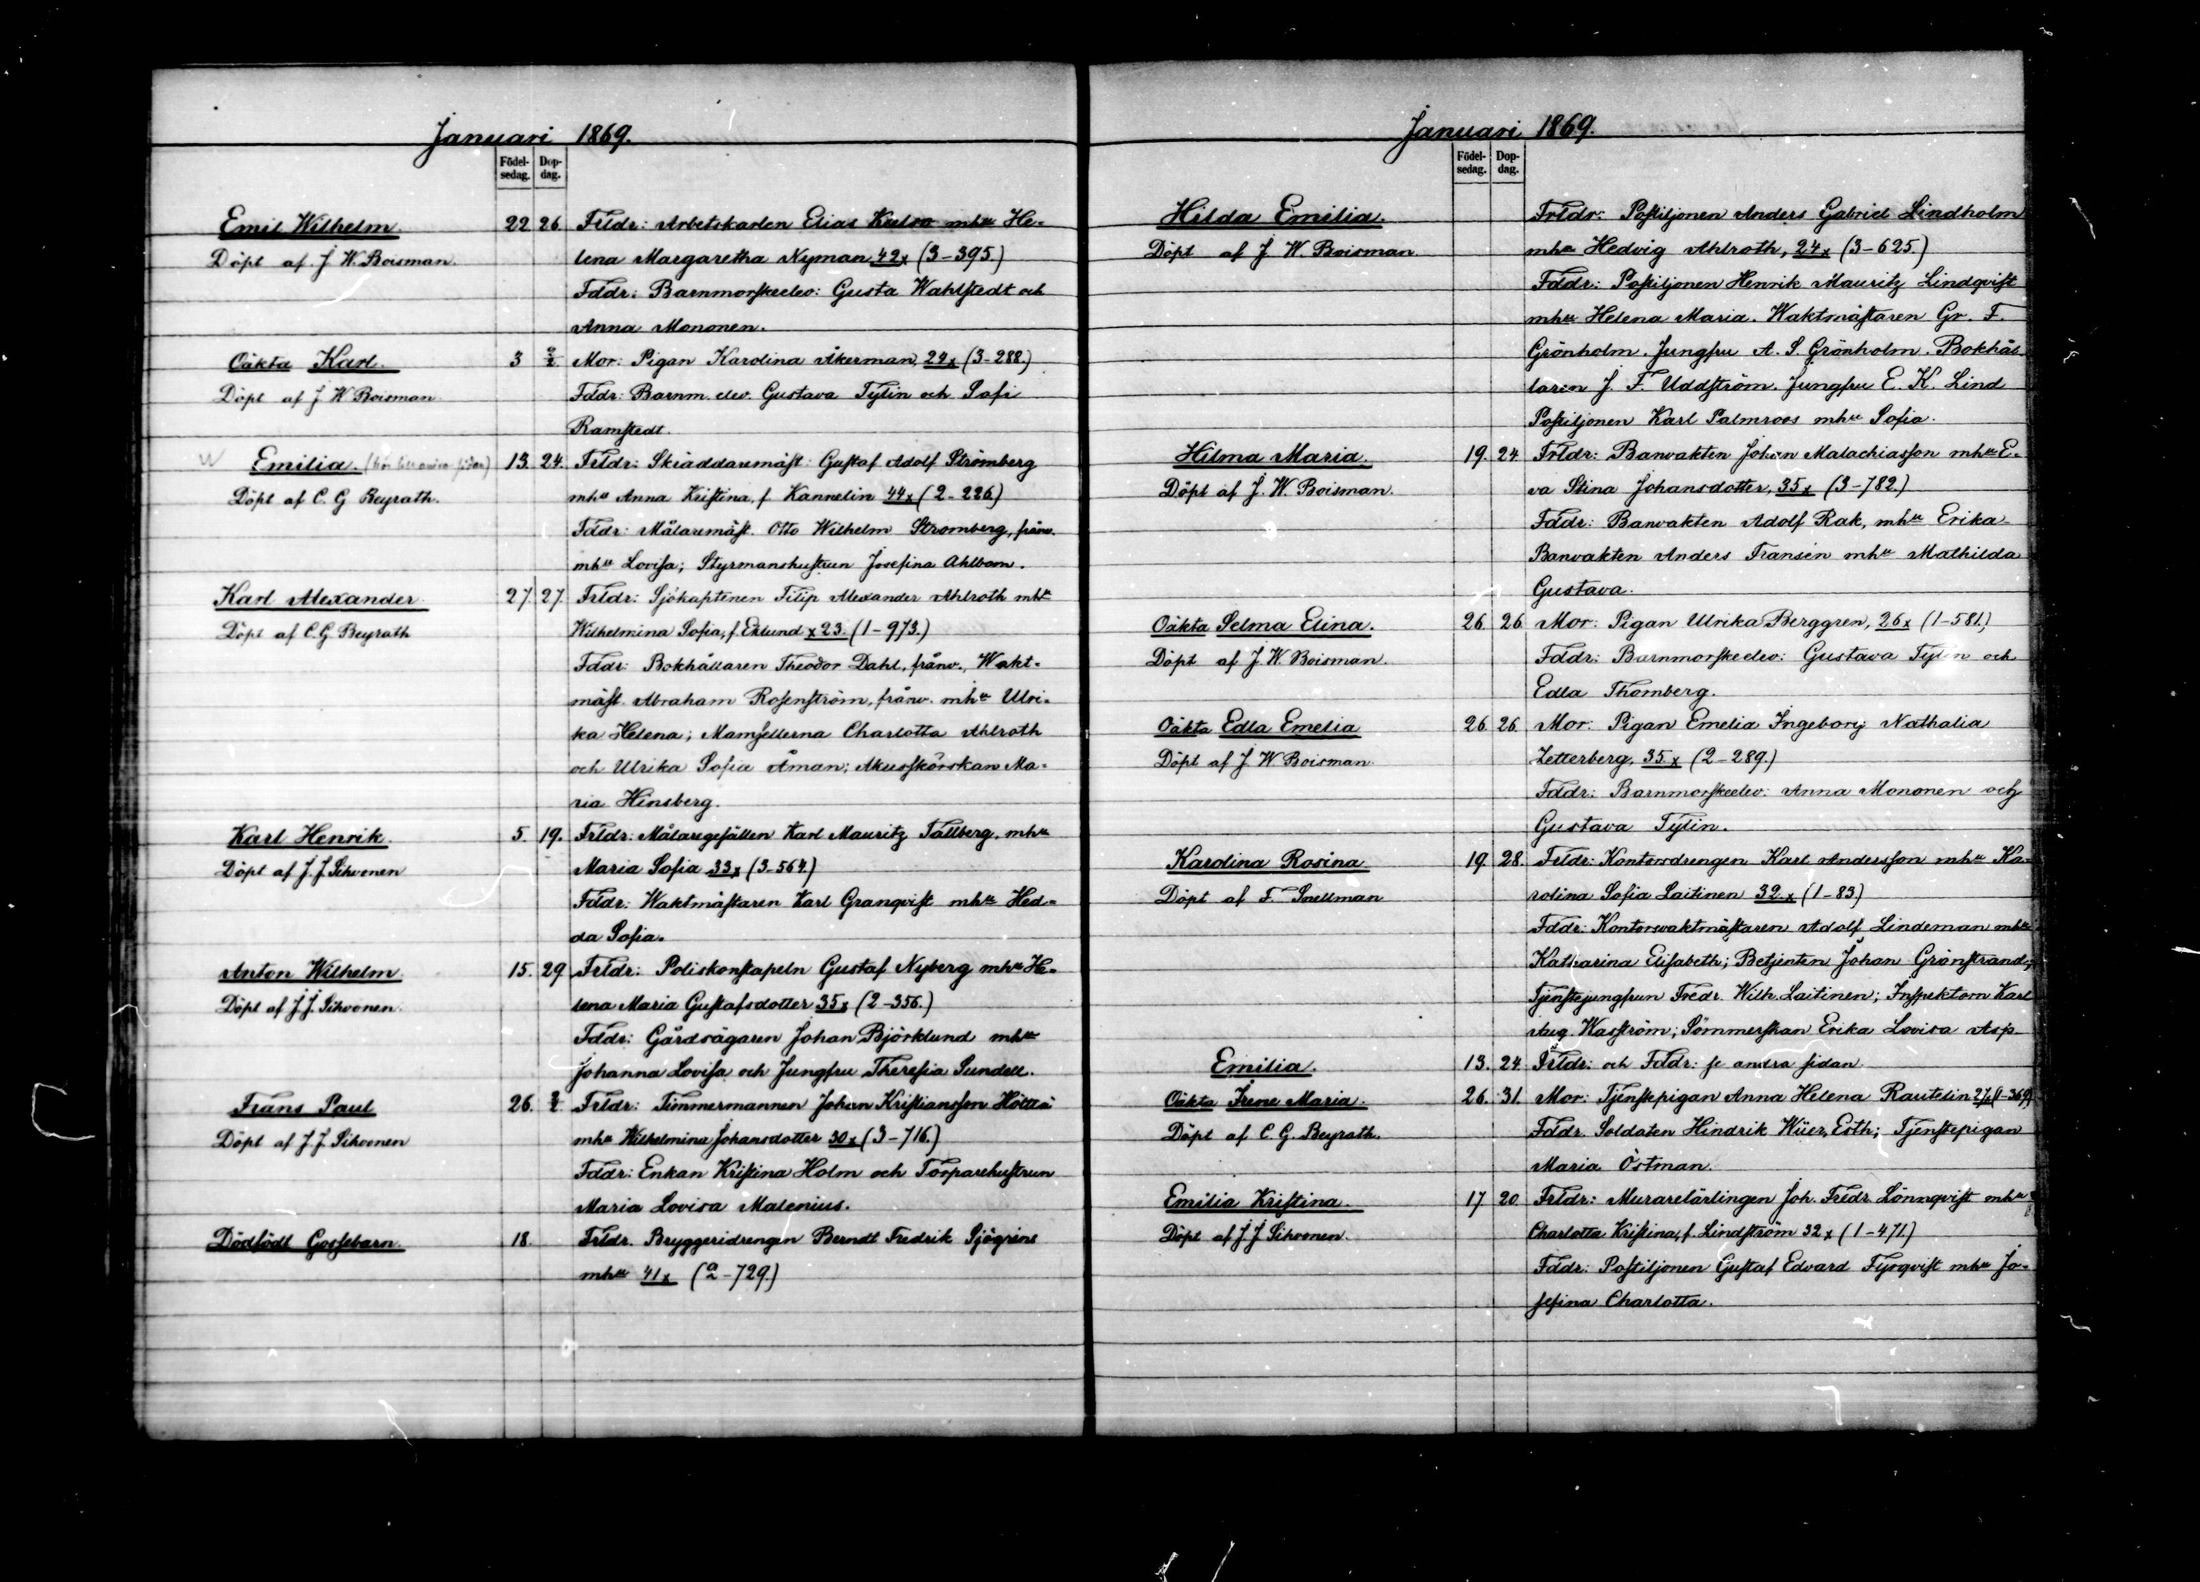 Januari 1869.
Födel-
sedag.
Dop-
dag.
Emil Wilhelm 22 26 Frldr: Arbetskarlen Elias mhu He-
Döpt af J. W. Boisman lena Margaretha Nyman 42x (3-395)
Fddr: Barnmorskeelev: Gusta Wahlstedt och
Anna Mononen.
Oäkta Karl. 3 2/2 Mor: Pigan Karolina Åkerman, 29x (3-288.)
Döpt af J W Boisman Fddr: Barnm. elev. Gustava Tylin och Sofi
Ramstedt.
Emilia. 13. 24. Frldr: Skräddaremäst: Gustaf Adolf Strömberg
Döpt af C. G Beyrath. mhu Anna Kristina, f Kannelin 44x (2-226)
Fddr: Målaremäst. Otto Wilhelm Stromberg, frånv.
mhu Lovisa; Styrmanshustrun Josefina Ahlbom.
Karl Alexander. 27. 27. Frldr: Sjökaptenen Filip Alexander Ahlroth mhu
Döpt af C. G. Beyrath Wilhelmina Sofia, f. Eklund x23. (1-973.)
Fddr: Bokhållaren Theodor Dahl, frånv., Wakt-
mäst. Abraham Rosenström, frånv. mhu Ulri-
ka Helena; Mamsellerna Charlotta Ahlroth
och Ulrika Sofia Åman; Akusskörskan Ma-
ria Hinsberg.
Karl Henrik. 5. 19. Frldr: Målaregesällen Karl Mauritz Tallberg. mhu
Döpt af J. J. Sihvonen Maria Sofia 33x (3-564.)
Fddr: Waktmästaren Karl Granqvist mhu Hed-
da Sofia.
Anton Wilhelm 15. 29 Frldr: Poliskonstapeln Gustaf Nyberg mhu He-
Döpt af J. J. Sihvonen. lena Maria Gustafsdotter 35x (2-356.)
Fddr: Gårdsägaren Johan Björklund mhu
Johanna Lovisa och Jungfru Theresia Sundell.
Frans Paul 26. 2/2 Frldr: Timmermannen Johan Kristiansson Höttä
Döpt af J. J Sihvonen mhu Wilhelmina Johansdotter 30x (3-716.)
Fddr: Enkan Kristina Holm och Torparehustrun
Maria Lovisa Malenius.
Dödfödt Gossebarn. 18. Frldr. Bryggeridrengen Berndt Fredrik Sjögrens
mhu 41x (a/2-729.)
Januari 1869.
Födel-
sedag.
Dop-
dag.
Hilda Emilia. Frldr: Postiljonen Anders Gabriel Lindholm
Döpt af J W. Boisman. mhu Hedvig Ahlroth, 24x (3-625.)
Fddr: Postiljonen Henrik Mauritz Lindqvist
mhu Helena Maria. Waktmästaren Gr. F.
Grönholm. Jungfru A. S. Grönholm. Bokhål-
laren J. F. Uddström. Jungfru E. K. Lind
Postiljonen Karl Palmroos mhu Sofia.
Hilma Maria. 19. 24 Frldr: Banvakten Johan Malachiasson mhu E-
Döpt af J. W. Boisman. va Stina Johansdotter, 35x (3-782.)
Fddr: Banvakten Adolf Rak, mhu Erika
Banvakten Anders Fransén mhu Mathilda
Gustava.
Oäkta Selma Elina. 26. 26 Mor: Pigan Ulrika Berggren, 26x (1-581.)
Döpt af J. W. Boisman. Fddr: Barnmorskeelev: Gustava Tylin och
Edla Thomberg.
Oäkta Edla Emelia 26. 26. Mor: Pigan Emelia Ingeborg Nathalia
Döpt af J. W Boisman. Zetterberg, 35x (2-289.)
Fddr: Barnmorskeelev: Anna Mononen och
Gustava Tylin.
Karolina Rosina 19. 28. Frldr: Kontorsdrengen Karl Andersson mhu Ka-
Döpt af F. Snellman rolina Sofia Laitinen 32x (1-83)
Fddr: Kontorsvaktmästaren Adolf Lindeman mhu
Katharina Elisabeth; Betjenten Johan Grönstrand;
Tjenstejungfrun Fredr. Wilh. Laitinen; Inspektorn Karl
Aug. Wasström; Sömmerskan Erika Lovisa Asp.
Emilia. 13. 24 Frldr: och Fddr: se andra sidan.
Oäkta Irene Maria. 26. 31. Mor: Tjenstepigan Anna Helena Rautelin 27x (1-369)
Döpt af C. G. Beyrath. Fddr. Soldaten Hindrik Wüer, Esth; Tjenstepigan
Maria Östman.
Emilia Kristina. 17. 20. Frldr: Murarelärlingen Joh. Fredr. Lönnqvist mhu
Döpt af J J Sihvonen. Charlotta Kristina, f. Lindström 32x (1-471.)
Fddr: Postiljonen Gustaf Edvard Fyrqvist mhu Jo-
sefina Charlotta.